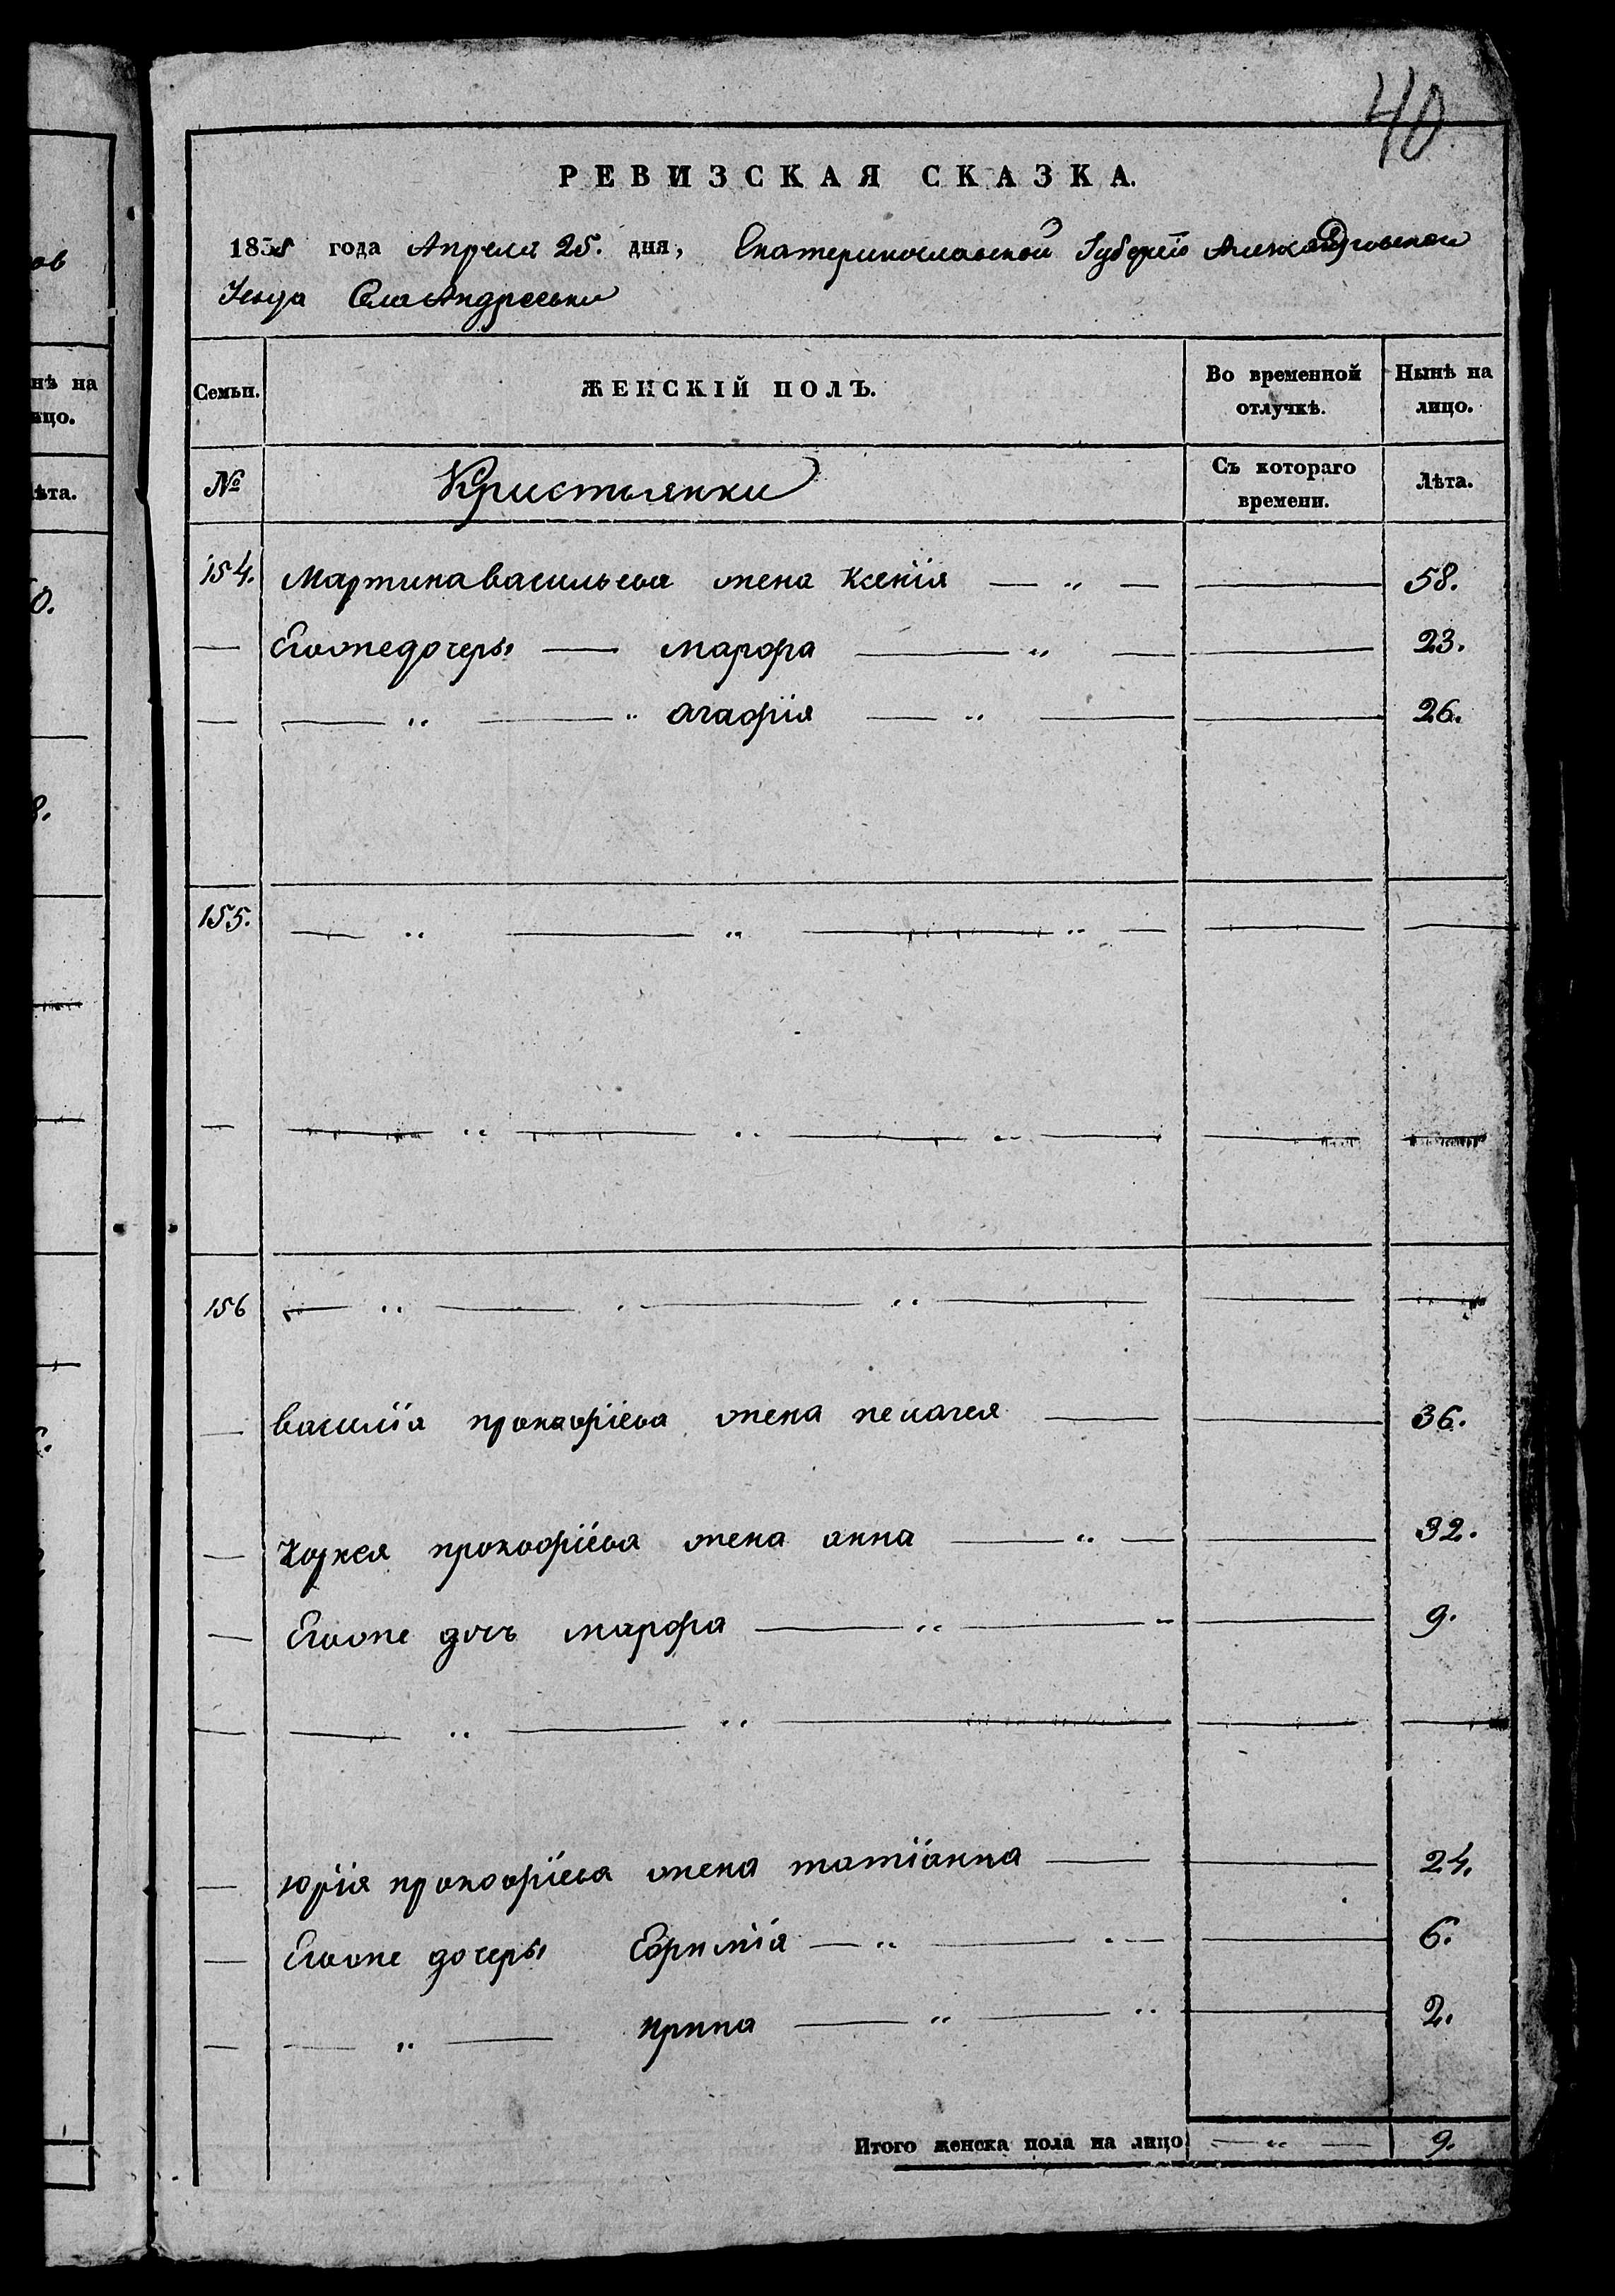 40
РЕВИЗСКАЯ СКАЗКА.
1835 года Апреля 25. дня, Екатеринославской Губерніи Александровскаго
Уезда Села Андреевки
Семьи.
ЖЕНСКІЙ ПОЛЪ.
Во временной отлучкѣ.
Нынѣ на лицо.
№
Кристьянки
Съ котораго времени.
Лѣта.
154. Мартина васильева жена Ксенія — „ — 58.
— Егожедочеры — марфа — „ — 23.
— — „ — „ агафія — „ — 26.
155. — „ — „ — „ —
— — „ — „ — „ —
156 — „ — „ — „ —
— василія прокофіева жена пелагея — 36.
— Карнея прокофіева жена анна — „ — 32.
— Егоже дочъ марфа — „ — 9.
— — „ — „ —
— юрія прокофіева жена татіанна — 24.
— Егоже дочеры Ефимія — „ — 6.
— — „ — ирина — „ — „ 2.
Итого женска пола на лицо — „ — 9.
ов
нѣ на
ицо.
ѣта.
0.
8.